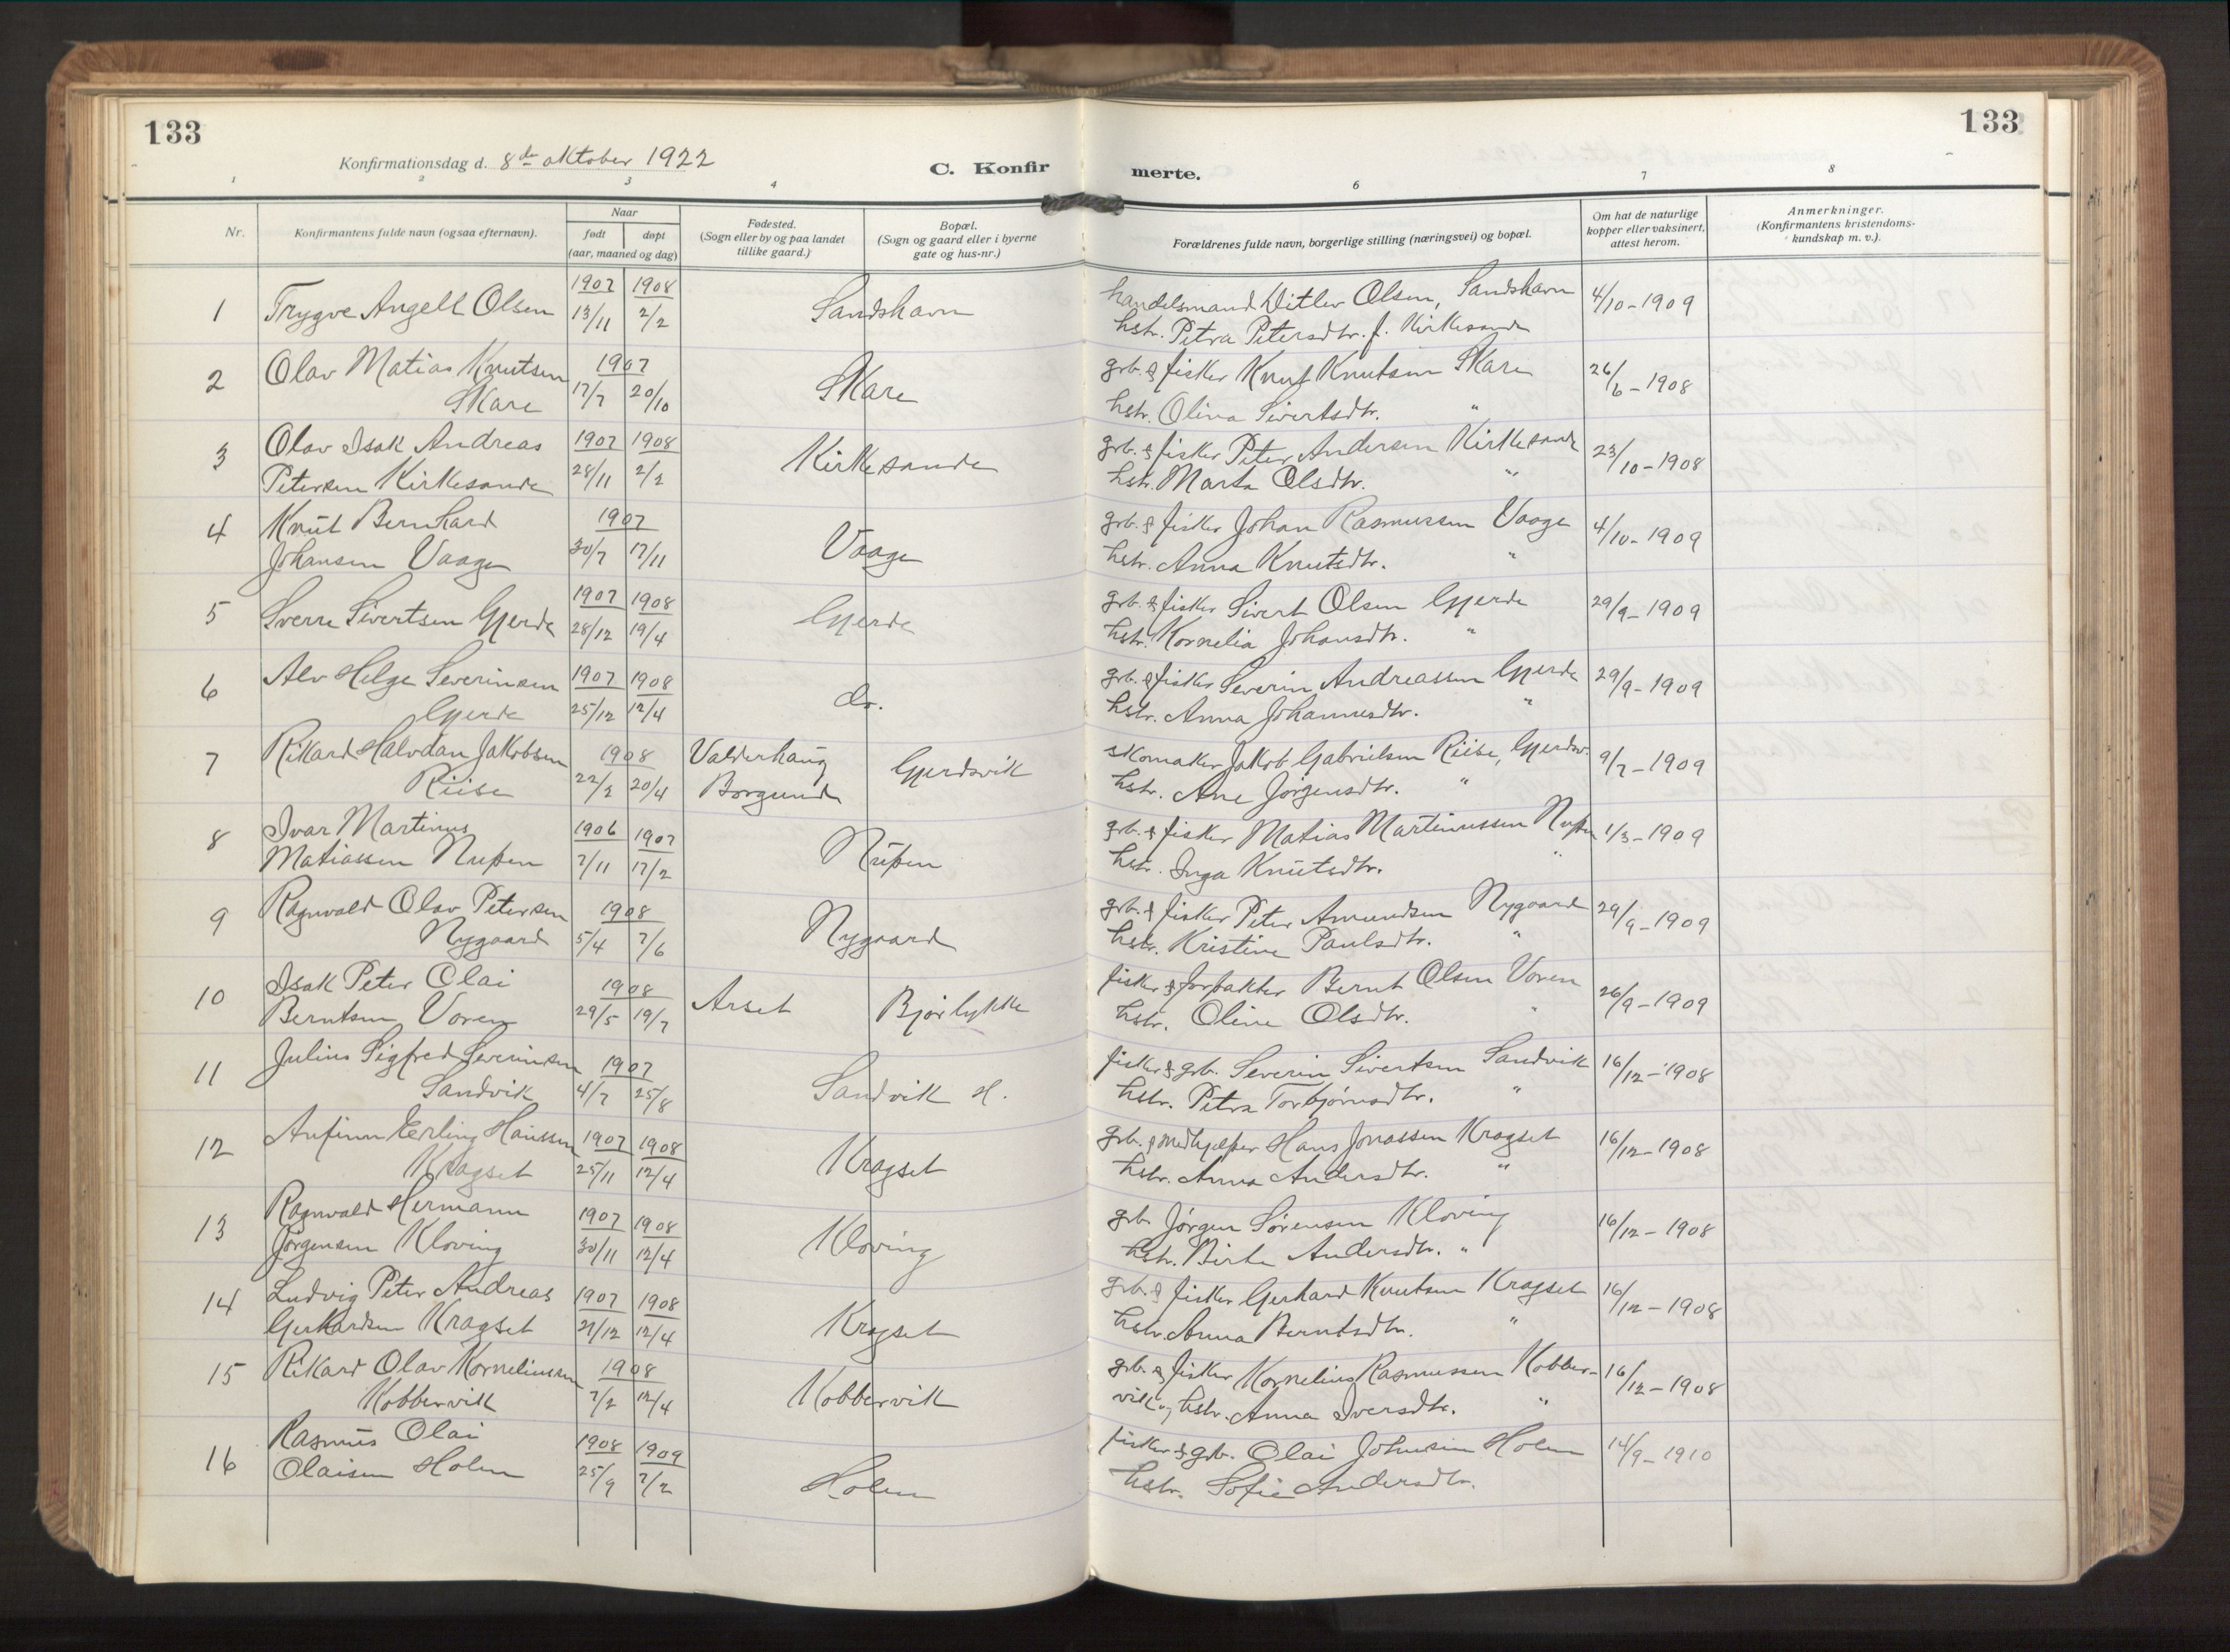 133
133
Konfirmationsdag d. 8de oktober 1922
C. Konfir
merte.
1 2 3 4 6 7 8
Nr.
Konfirmantens fulde navn (ogsaa efternavn).
Naar
født døpt
(aar, maaned og dag)
Fødested.
(Sogn eller by og paa landet
tillike gaard.)
Bopæl.
(Sogn og gaard eller i byerne
gate og hus-nr.)
Forældrenes fulde navn, borgerlige stilling (næringsvei) og bopæl.
Om hat de naturlige
kopper eller vaksinert,
attest herom.
Anmerkninger.
(Konfirmantens kristendoms-
kundskap m. v.).
1907 1908 handelsmand Ditlev Olsen, Sandshavn
1 Trygve Angell Olsen 13/11 2/2 Sandshavn hstr. Petra Petersdtr. f. Kirkesande 4/10-1909
2 Olav Matias Knutsen 1907 grb. & fisker Knut Knutsen Skare 26/6-1908
Skare 17/7 20/10 Skare hstr. Olina Sivertsdtr. "
3 Olav Isak Andreas 1907 1908 grb. & fisker Peter Andersen Kirkesande 23/10-1908
Petersen Kirkesande 28/11 2/2 Kirkesande hstr. Marta Olsdtr. "
4 Knut Bernhard 1907 grb. & fisker Johan Rasmussen Vaage 4/10-1909
Johansen Vaage 30/7 17/11 Vaage hstr. Anna Knutsdtr. "
1907 1908 grb. & fisker Sivert Olsen Gjerde 29/9-1909
5 Sverre Sivertsen Gjerde 28/12 19/4 Gjerde hstr. Kornelia Johansdtr. "
6 Alv Helge Severinsen 1907 1908 grb. & fisker Severin Andreassen Gjerde 29/9-1909
Gjerde 25/12 12/4 do. hstr. Anna Johannesdtr. "
7 Rikard Halvdan Jakobsen 1908 Valderhaug Gjerdsvik skomaker Jakob Gabrielsen Riise, Gjerdsv. 9/7-1909
Riise 22/2 20/4 Borgund hstr. Ane Jørgensdtr. "
8 Ivar Martinus 1906 1907 grb. & fisker Matias Martinussen Nupen 1/3-1909
Matiassen Nupen 7/11 17/2 Nupen hstr. Inga Knutsdtr. "
9 Ragnvald Olav Petersen 1908 grb. & fisker Peter Amundsen Nygaard 29/9-1909
Nygaard 5/4 7/6 Nygaard hstr. Kristine Paulsdtr. "
10 Isak Peter Olai 1908 Arset Bjørlykke fisker & forpakter Bernt Olsen Voren 26/9-1909
Berntsen Voren 29/5 19/7 hstr. Oline Olsdtr. "
11 Julius Sigfred Severinsen 1907 fisker & grb. Severin Sivertsen Sandvik 16/12-1908
Sandvik 4/7 25/8 Sandvik H. hstr. Petra Torbjørnsdtr. "
12 Anfinn Erling Hanssen 1907 1908 grb. & medhjælper Hans Jonassen Kragset 16/12-1908
Kragset 25/11 12/4 Kragset hstr. Anna Andersdtr. "
13 Ragnvald Hermann 1907 1908 grb. Jørgen Sørensen Kloving 16/12-1908
Jørgensen Kloving 30/11 12/4 Kloving hstr. Birte Andersdtr. "
14 Ludvig Peter Andreas 1907 1908 grb. & fisker Gerhard Knutsen Kragset 16/12-1908
Gerhardsen Kragset 21/12 12/4 Kragset hstr. Anna Berntsdtr. "
15 Rikard Olav Korneliussen 1908 grb. & fisker Kornelius Rasmussen Kobber- 16/12-1908
Kobbervik 7/2 12/4 Kobbervik vik og hstr. Anna Iversdtr. "
16 Rasmus Olai 1908 1909 fisker & grb. Olai Johnsen Holen 14/9-1910
Olaisen Holen 25/9 7/2 Holen hstr. Sofie Andersdtr.